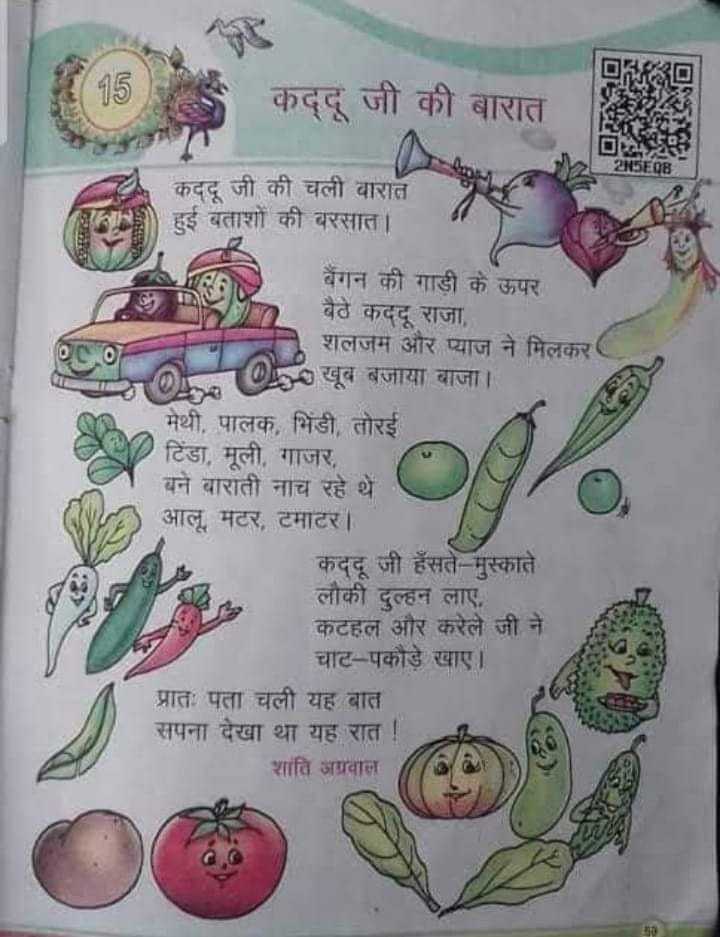 15
कद्दू जी की बारात
2N5EQB
कद्दू जी की चली बारात
हुई बताशों की बरसात।
बैंगन की गाड़ी के ऊपर
बैठे कद्दू राजा,
शलजम और प्याज ने मिलकर
खूब बजाया बाजा।
मेथी, पालक, भिंडी, तोरई
टिंडा, मूली, गाजर,
बने बाराती नाच रहे थे
आलू, मटर, टमाटर।
कद्दू जी हँसते–मुस्काते
लौकी दुल्हन लाए,
कटहल और करेले जी ने
चाट–पकौड़े खाए।
प्रातः पता चली यह बात
सपना देखा था यह रात !
शांति अग्रवाल
59